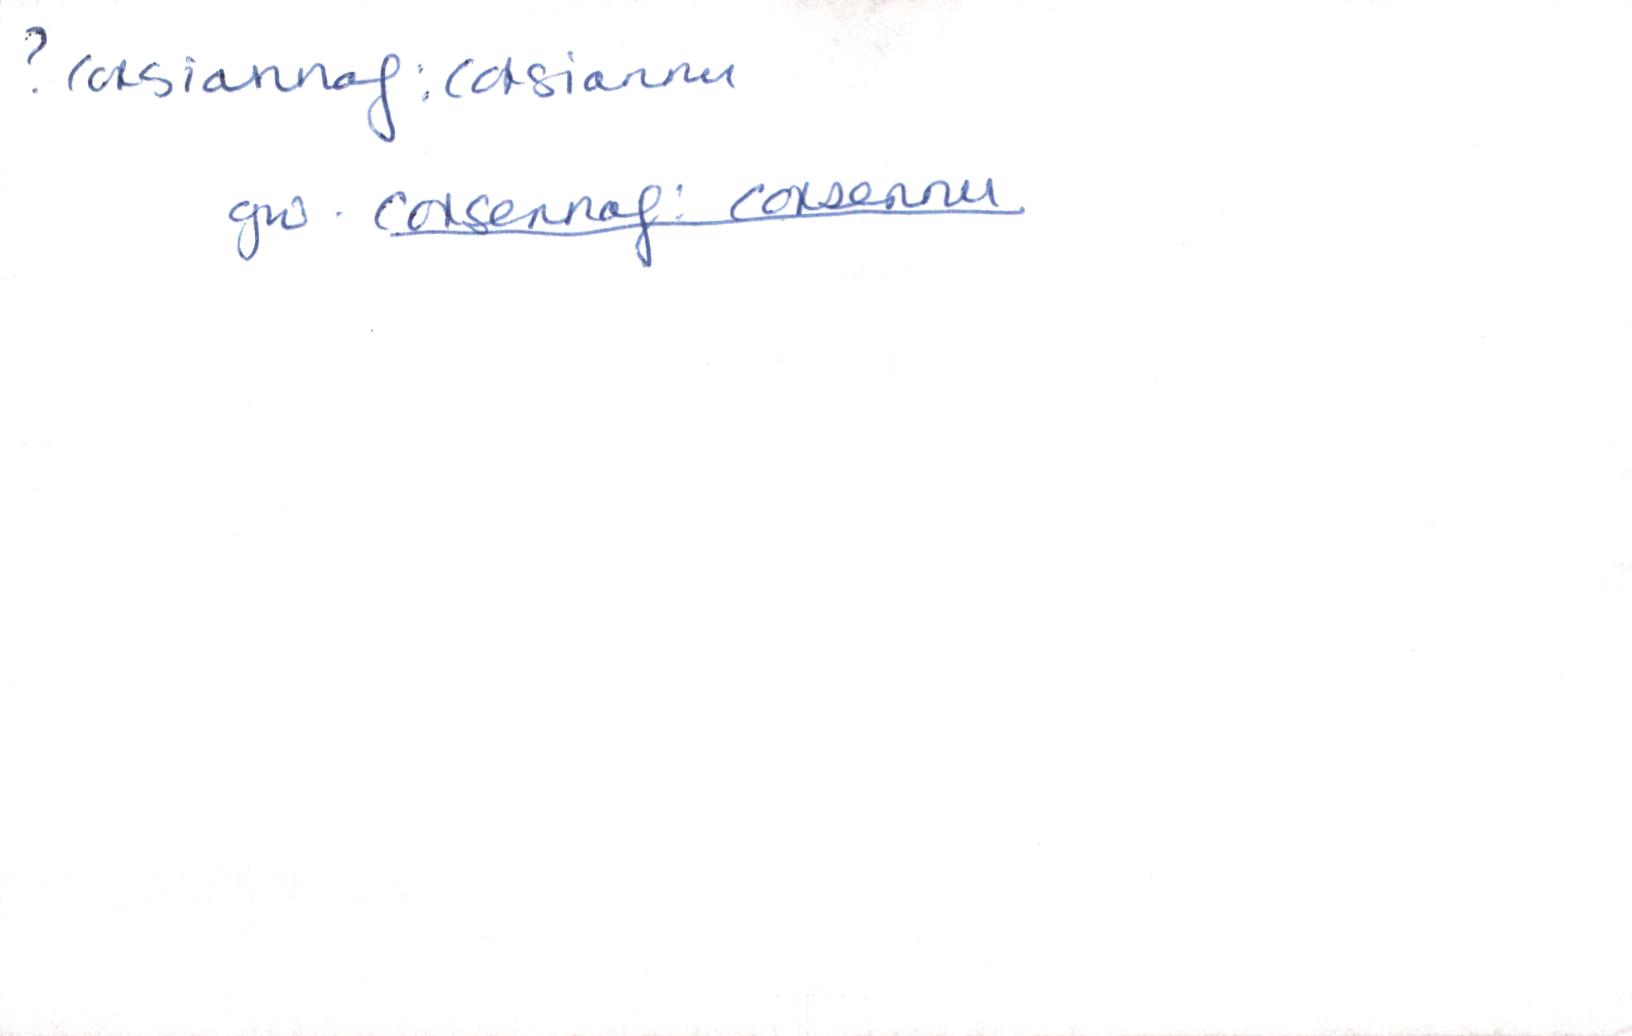 ? corsiannaf: corsiannu
gw. corsennaf: corsennu